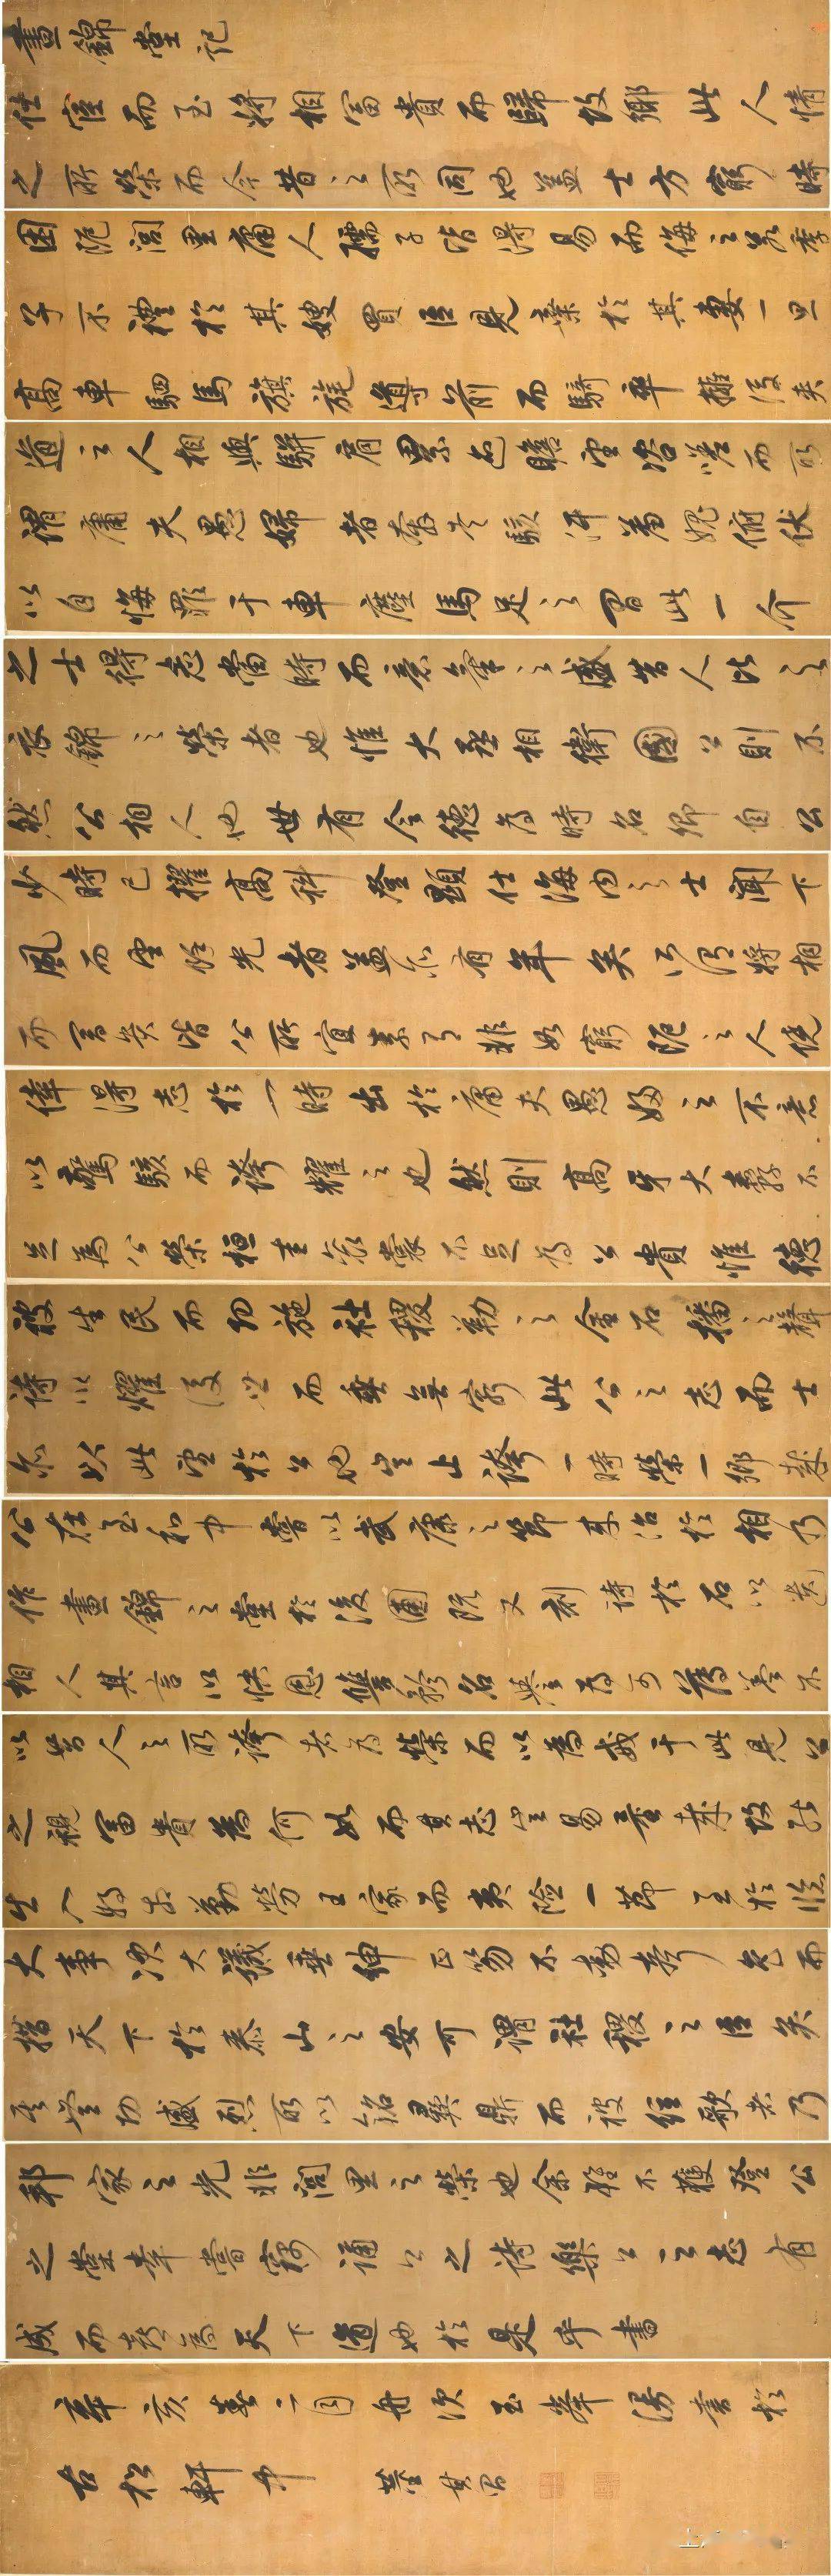 晝錦堂記
仕宦而至將相富貴而歸故鄉此人情
之所榮而今昔之所同也蓋士方窮時
困阨閭里庸人孺子皆得易而侮之若季
子不禮於其嫂買臣見棄於其妻一旦
高車駟馬旗旄導前而騎卒擁後夾
道之人相與駢肩累迹瞻望咨嗟而所
謂庸夫愚婦者奔走駭汗羞愧俯伏
以自悔罪于車塵馬足之間此一介
之士得志當時而意氣之盛昔人比之
衣錦之榮者也惟大丞相衛國公則不
然公相人也世有令德為時名卿自公
少時已擢高科登顯仕海內之士聞下
風而望餘光者蓋亦有年矣所謂將相
而富貴皆公所宜素有非如窮阨之人僥
倖得志於一時出於庸夫愚婦之不意
以驚駭而誇耀之也然則高牙大纛不
足為公榮桓圭袞裳不足為公貴惟德
被生民而功施社稷勒之金石播之聲
詩以耀後世而垂無窮此公之志而士
亦以此望於公也豈止誇一時榮一鄉哉
公在至和中嘗以武康之節來治於相乃
作晝錦之堂於後圃既又刻詩於石以遺
相人其言以快恩讎矜名譽為可薄蓋不
以昔人之所誇者為榮而以為戒于此見公
之視富貴為何如而其志豈易量哉故能
出入將相勤勞王家而夷險一節至於臨
大事決大議垂紳正笏不動聲色而
措天下於泰山之安可謂社稷之臣矣
其豐功盛烈所以銘彝鼎而被絃歌者乃
邦家之光非閭里之榮也余雖不獲登公
之堂幸嘗竊誦公之詩樂公之志有
成而喜為天下道也於是乎書
辛亥春二月舟次玉峰漫書於
古松軒中 董其昌